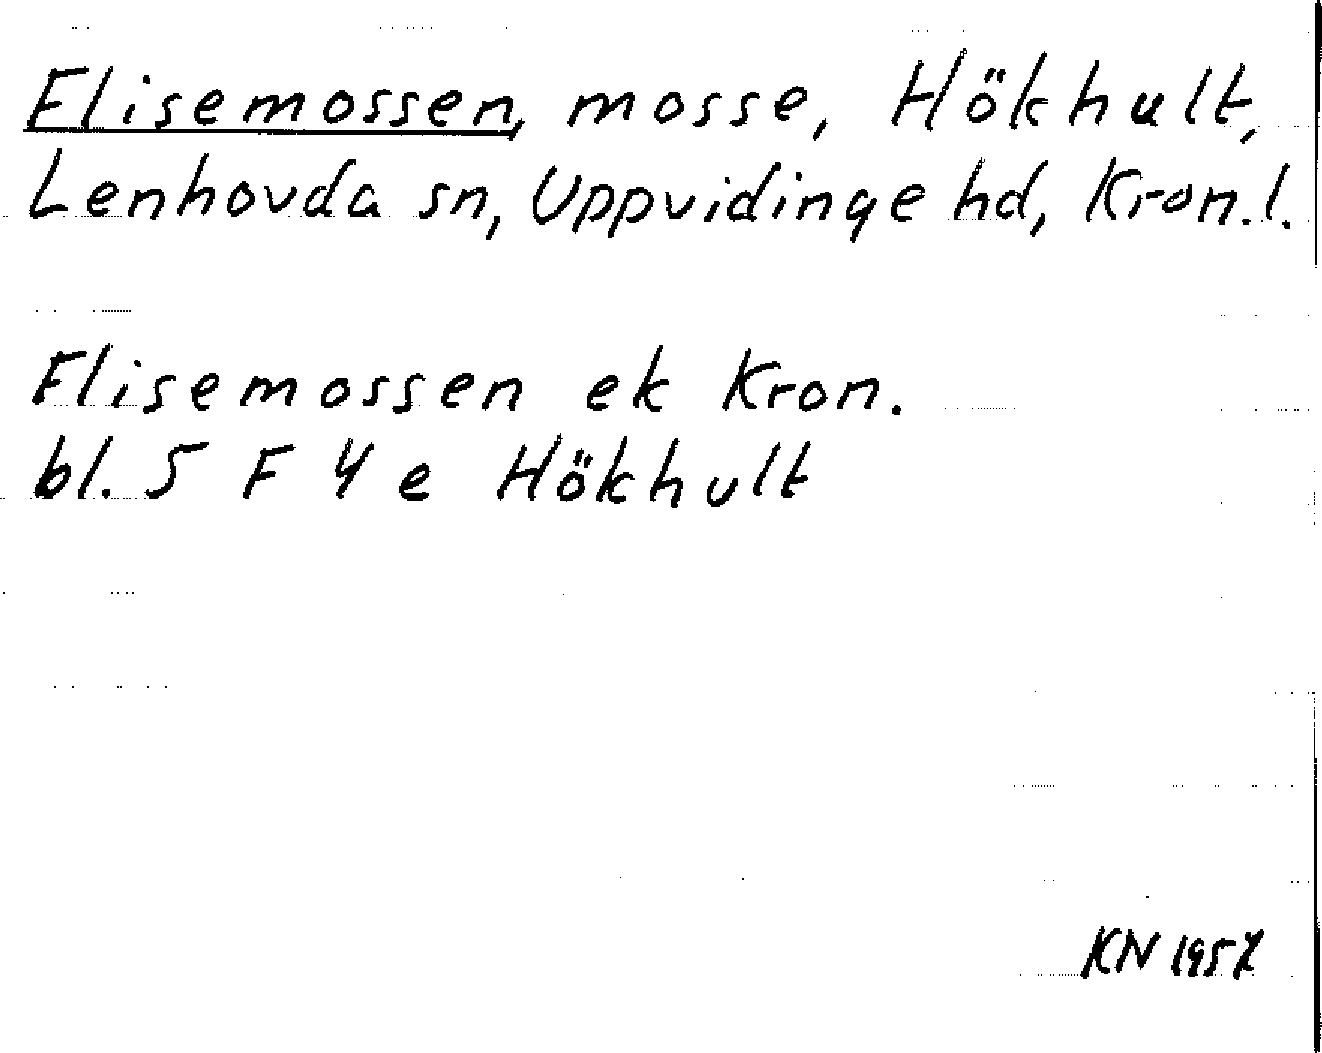 Flisemossen, mosse, Hökhult,
Lenhovda sn, Uppvidinge hd, Kron.l.
Flisemossen ek Kron.
bl. 5 F 4 e Hökhult
KN 1957